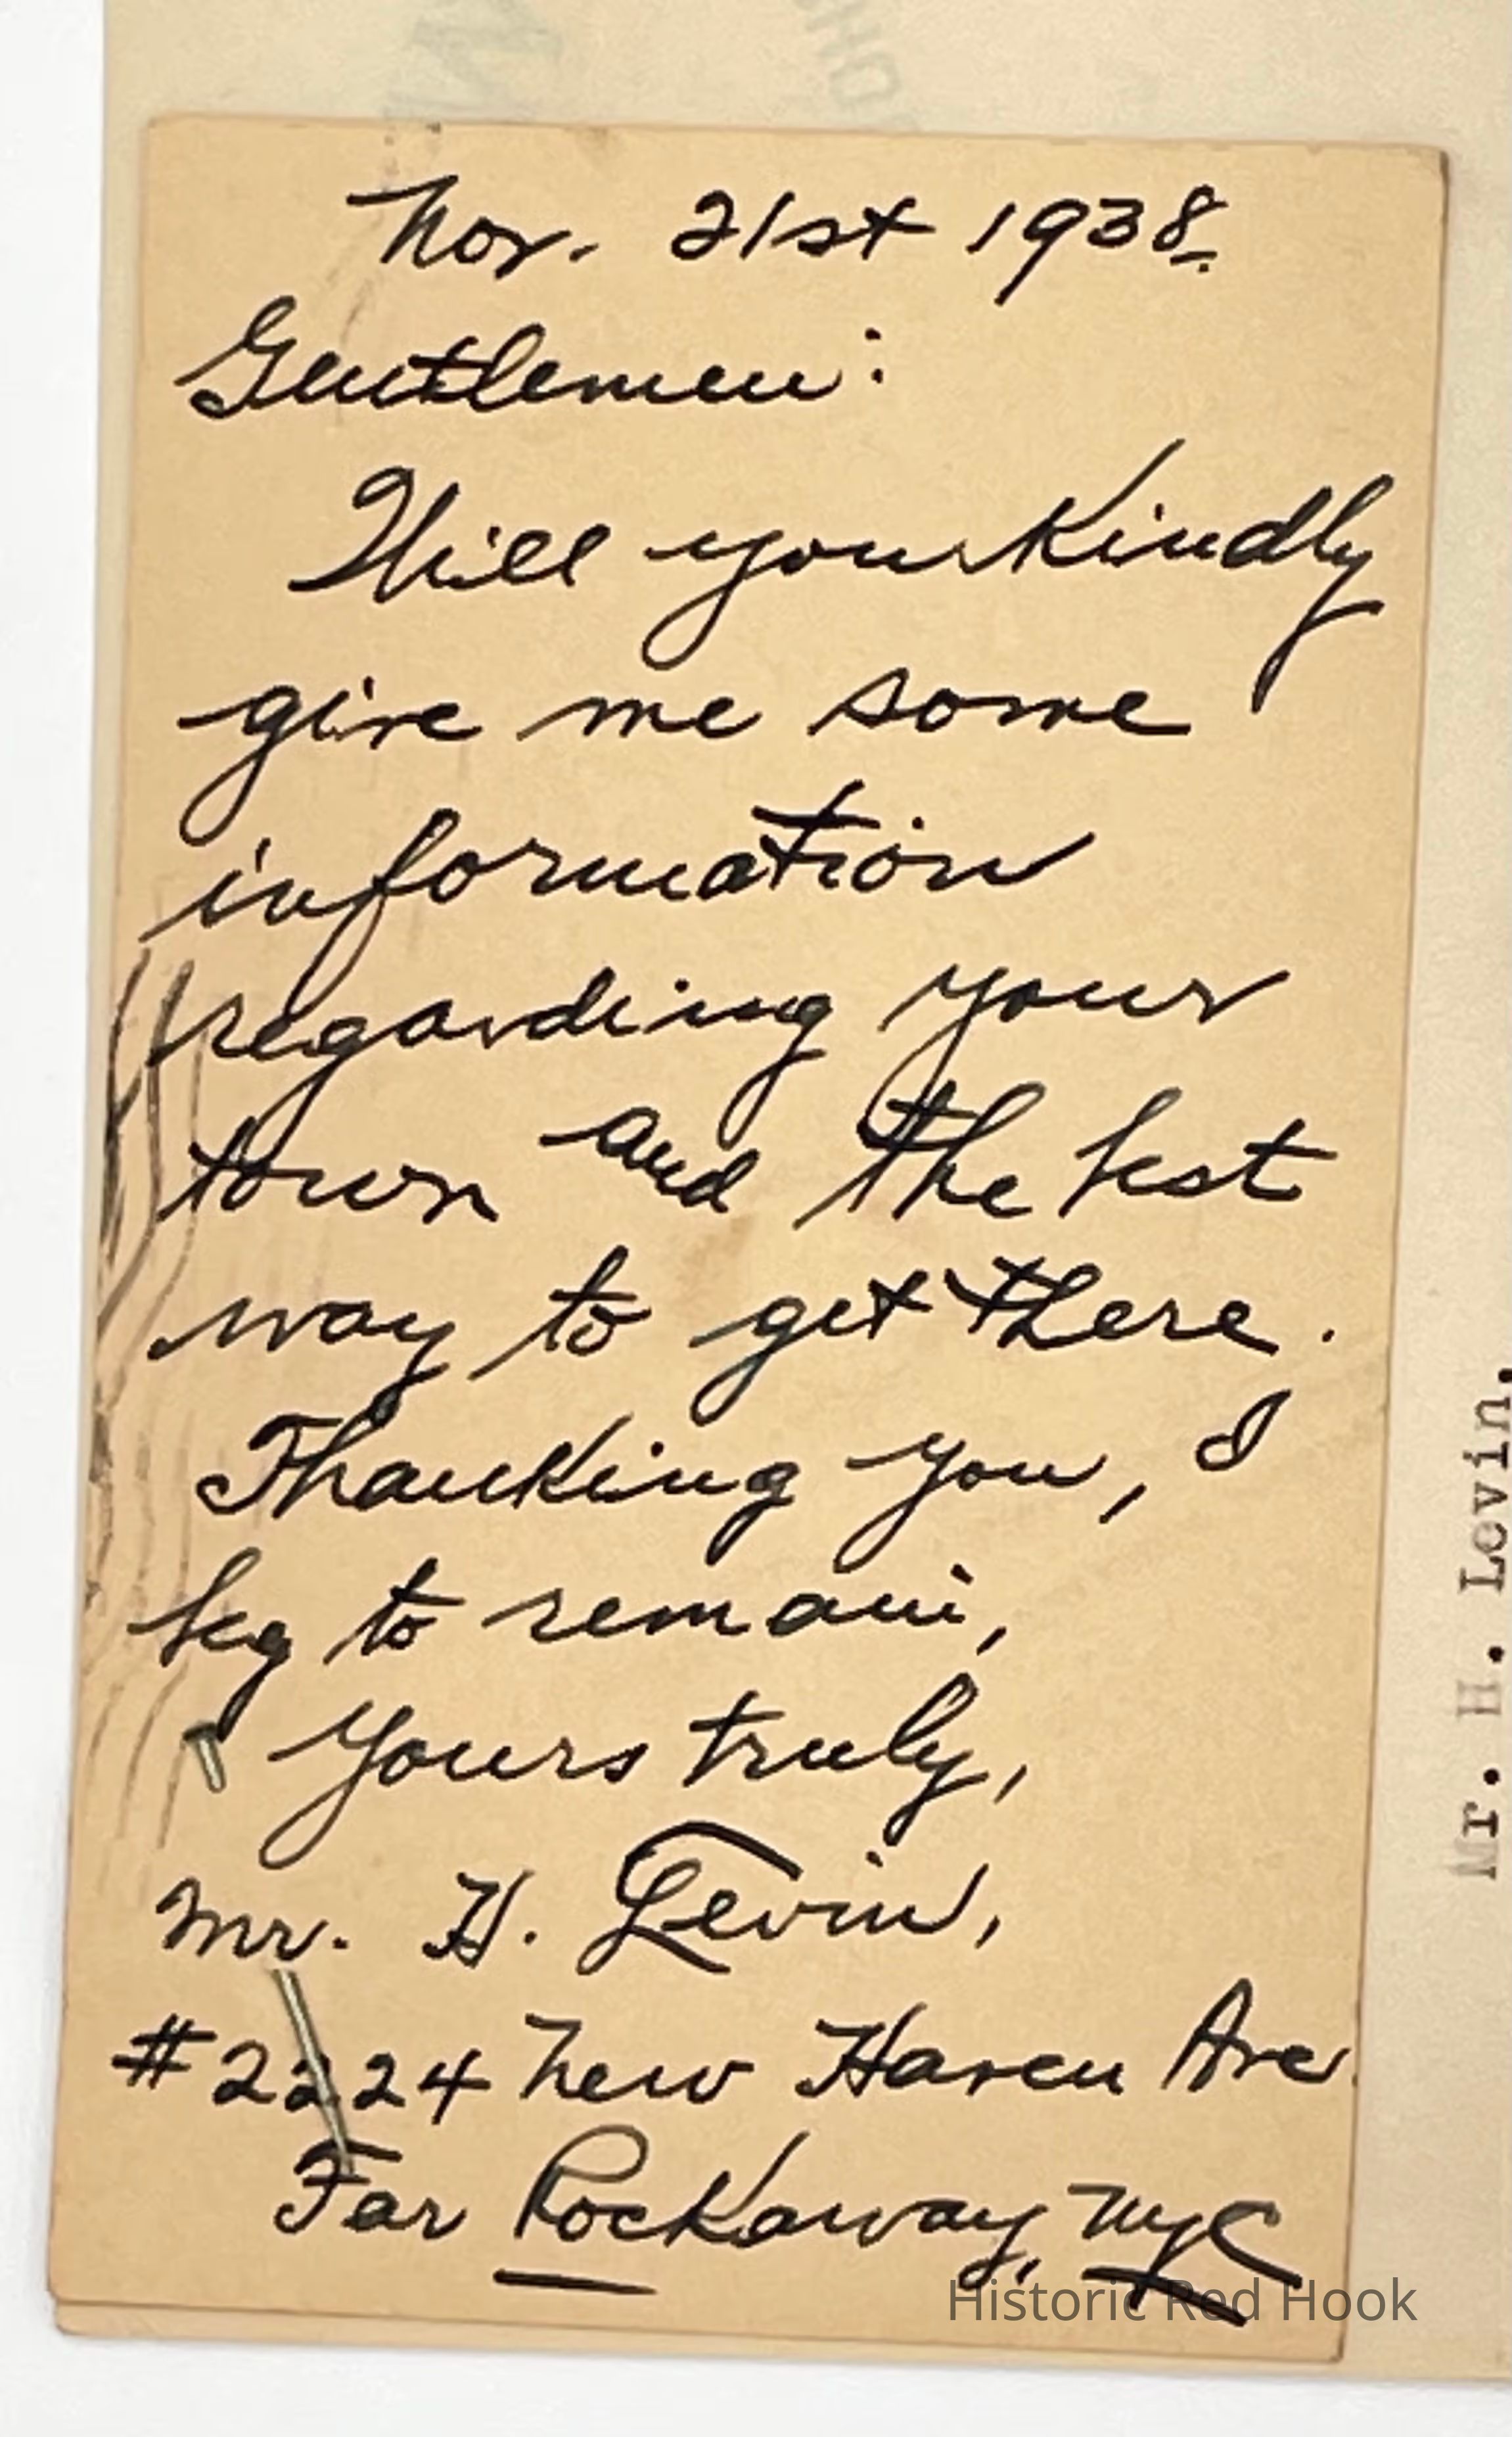 Nov. 21st 1938.
Gentlemen:
Will you Kindly
give me some
information
regarding your
town and the best
way to get there.
Thanking you, I
beg to remain,
Yours truly,
Mr. H. Levin,
#2224 New Haven Ave.
Far Rockaway, NYC
Mr. H. Levin,
Historic Red Hook